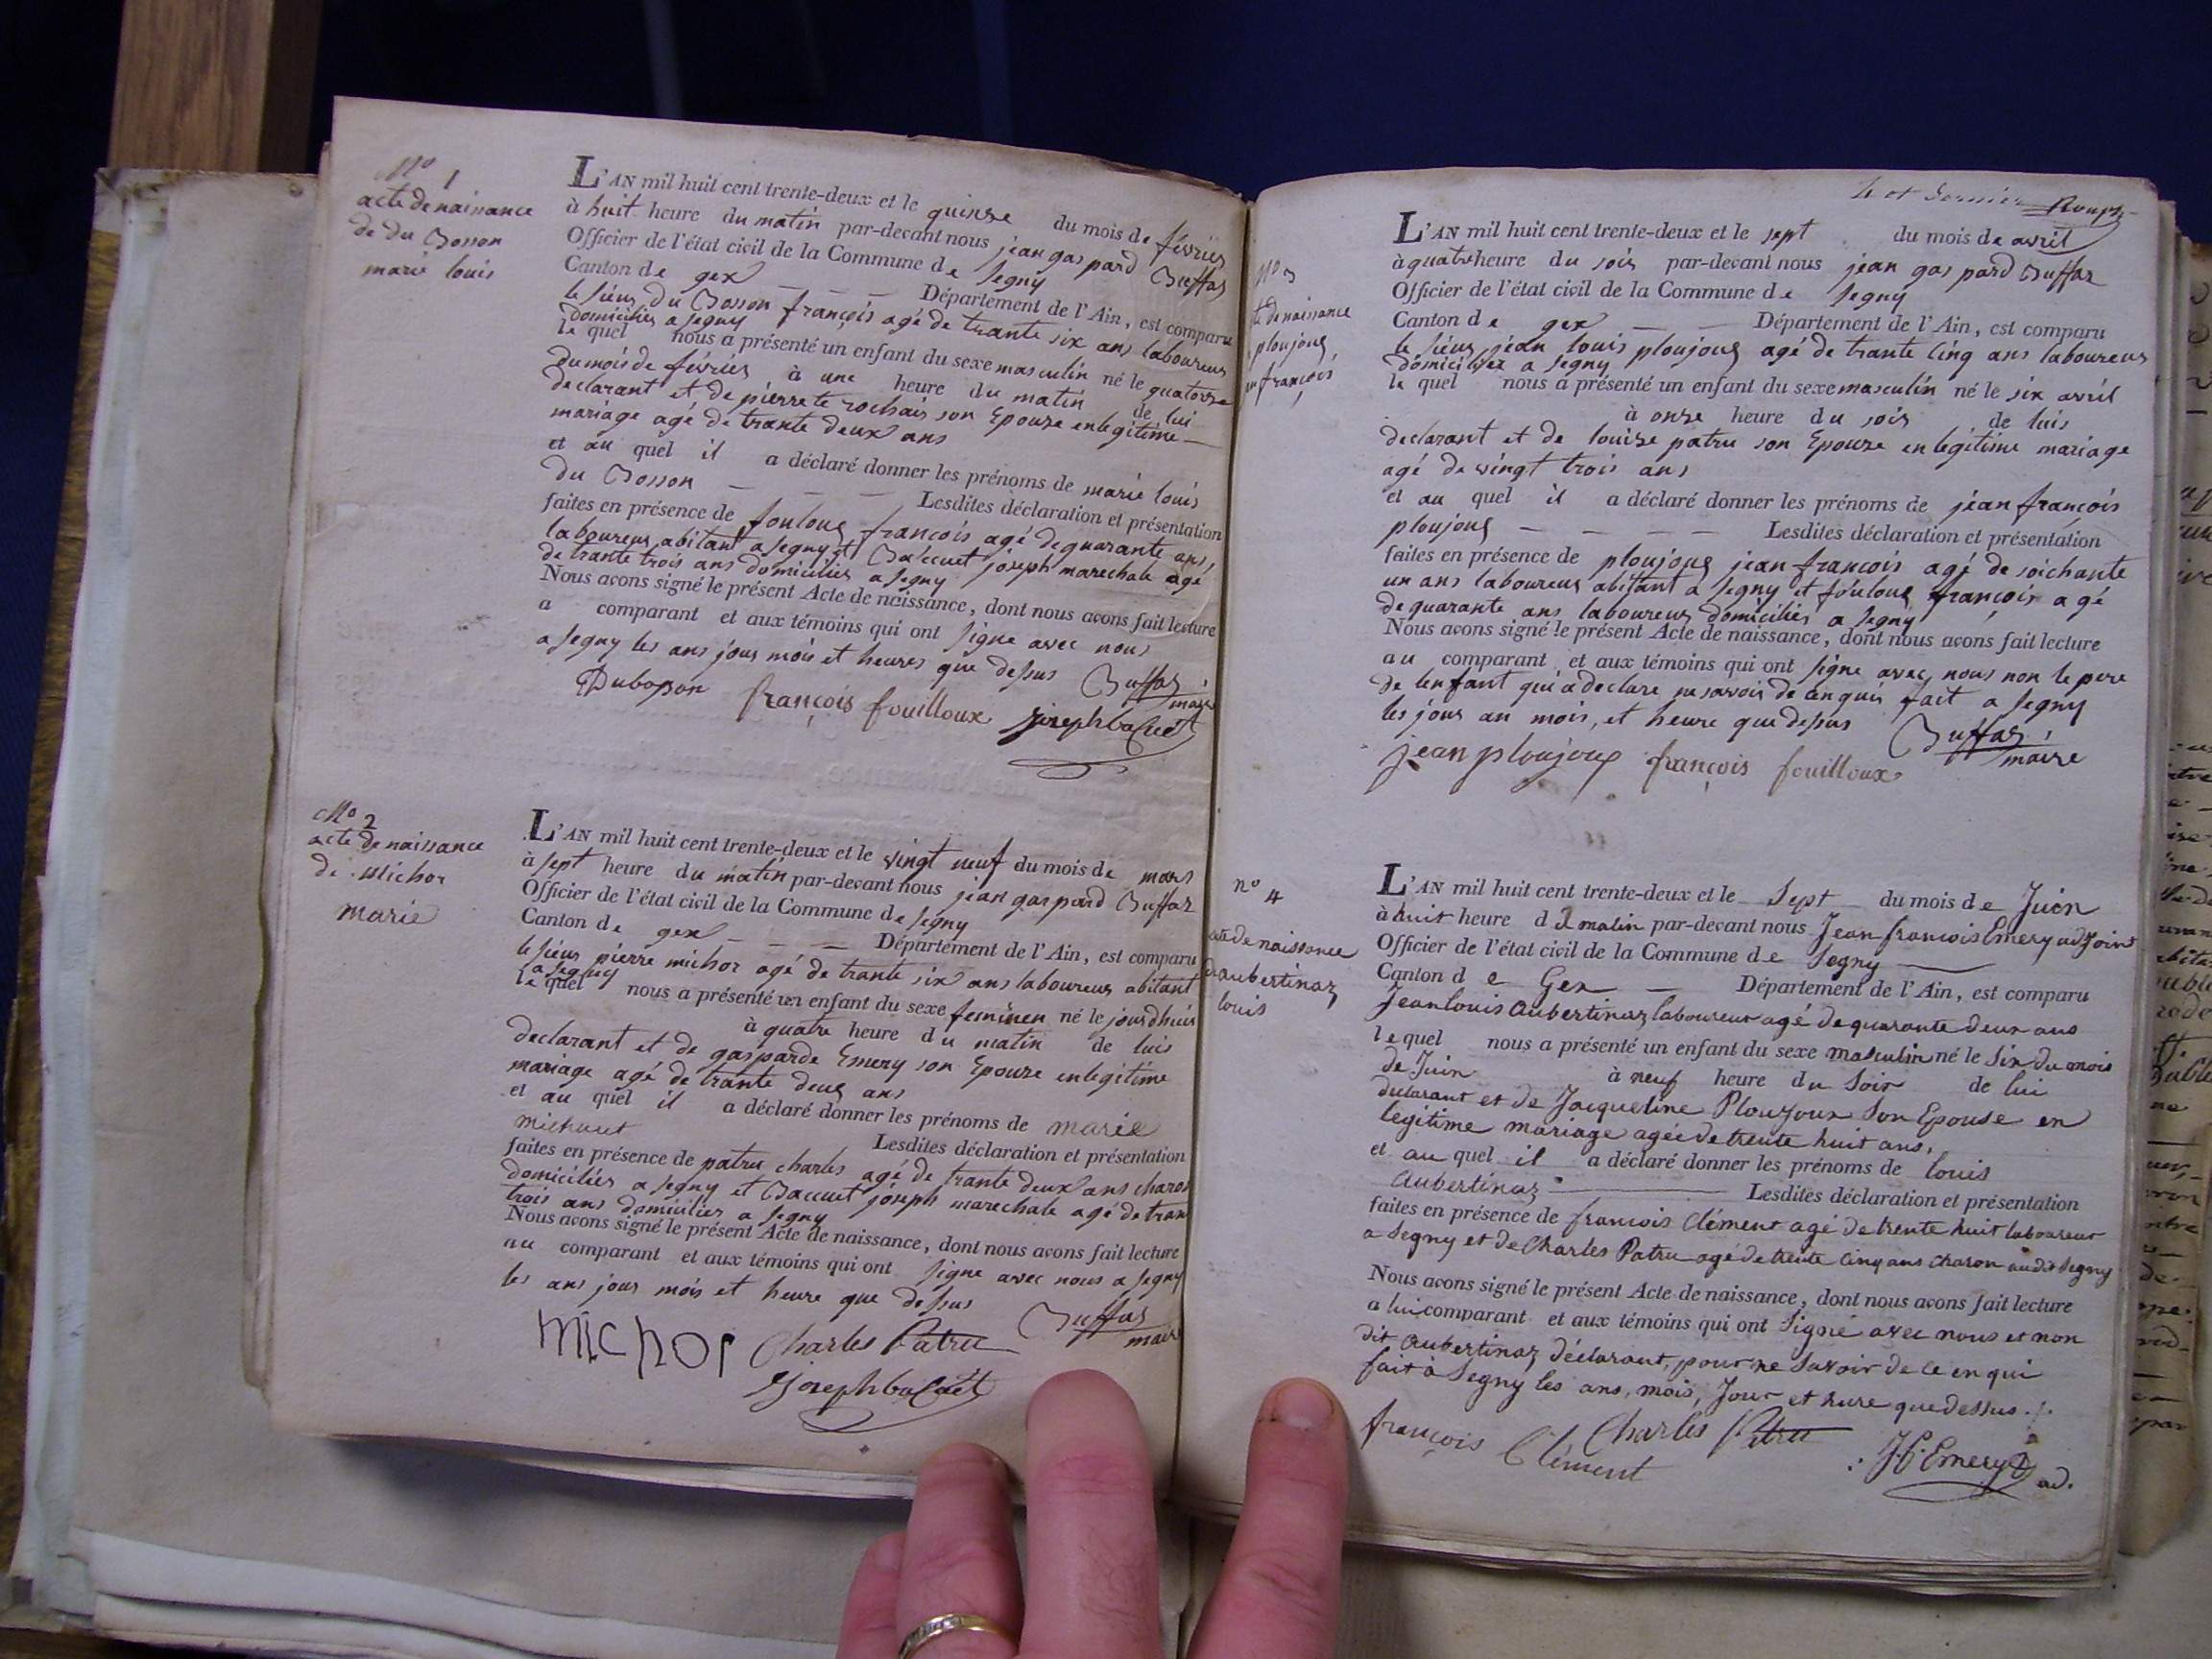 No 1
acte de naissance
de du Bosson
marie louis
L'AN mil huit cent trente-deux et le quinze du mois de février
à huit heure du matin par-devant nous jean gaspard Buffaz
Officier de l'état civil de la Commune de segny
Canton de gex Département de l'Ain, est comparu
le sieur du Bosson françois agé de trante six ans laboureur
domiciliés a segny
le quel nous a présenté un enfant du sexe masculin né le quatorze
du mois de février à une heure du matin de lui
declarant et de pierrete rochais son Epouze en legitime
mariage agé de trante deux ans
et au quel il a déclaré donner les prénoms de marie louis
du Bosson Lesdites déclaration et présentation
faites en présence de foulouz françois agé de quarante ans,
laboureur abitant a segny et Bacuet joseph marechale agé
de trante trois ans domiciliés a segny
Nous avons signé le présent Acte de naissance, dont nous avons fait lecture
a comparant et aux témoins qui ont signe avec nous
a segny les ans jours mois et heures que dessus Buffaz
maire
Dubosson françois fouilloux joseph bacuet
No 2
acte de naissance
de michoz
marie
L'AN mil huit cent trente-deux et le vingt neuf du mois de mars
à sept heure du matin par-devant nous jean gaspard Buffaz
Officier de l'état civil de la Commune de segny
Canton de gex Département de l'Ain, est comparu
le sieur pierre michoz agé de trante six ans laboureur abitant
a segny
le quel nous a présenté un enfant du sexe feminen né le jourdhuis
à quatre heure du matin de luis
declarant et de gasparde Emery son Epouze en legitime
mariage agé de trante deuz ans
et au quel il a déclaré donner les prénoms de marie
Lesdites déclaration et présentation
faites en présence de patru charles agé de trante deux ans charon
domiciliés a segny et Baccuet joseph marechale agé de tran
trois ans domiciliés a segny
Nous avons signé le présent Acte de naissance, dont nous avons fait lecture
au comparant et aux témoins qui ont signe avec nous a segny
les ans jours mois et heure que dessus Buffaz
maire
michor Charles Patru
joseph bacuet
4 et dernier
No 3
te de naissance
ploujouz
françois
L'AN mil huit cent trente-deux et le sept du mois de avril
à quatre heure du soir par-devant nous jean gaspard Buffaz
Officier de l'état civil de la Commune de segny
Canton de gex Département de l'Ain, est comparu
le sieur jean louis ploujouz agé de trante cinq ans laboureur
domiciliez a segny
le quel nous a présenté un enfant du sexe masculin né le six avril
à onze heure du soir de luis
declarant et de louise patru son Epouze en legitime mariage
agé de vingt trois ans
et au quel il a déclaré donner les prénoms de jean françois
ploujouz Lesdites déclaration et présentation
faites en présence de ploujouz jean françois agé de soichante
un ans laboureur abitant a segny et foulouz françois agé
de quarante ans laboureur domiciliés a segny
Nous avons signé le présent Acte de naissance, dont nous avons fait lecture
au comparant et aux témoins qui ont signe avec nous non le pere
de lenfant qui a declare ne savoir de enquis fait a segny
les jour an mois, et heure que dessus Buffaz
maire
jean ploujoux françois fouilloux
no 4
acte de naissance
de aubertinaz
louis
L'AN mil huit cent trente-deux et le Sept du mois de Juin
à huit heure du matin par-devant nous Jean francois Emery adjoint
Officier de l'état civil de la Commune de Segny
Canton de Gex Département de l'Ain, est comparu
Jean louis Aubertinaz laboureur agé de quarante deux ans
lequel nous a présenté un enfant du sexe masculin né le Six du mois
de Juin à neuf heure du Soir de lui
declarant et de Jacqueline Ploujoux Son Epouse en
legitime mariage agée de trente huit ans,
et au quel il a déclaré donner les prénoms de louis
Aubertinaz Lesdites déclaration et présentation
faites en présence de francois Clément agé de trente huit laboureur
a Segny et de Charles Patru agé de trente cinq ans charon audit Segny
Nous avons signé le présent Acte de naissance, dont nous avons fait lecture
a lui comparant et aux témoins qui ont Signé avec nous et non
dit Aubertinaz déclarant, pour ne Savoir de ce enqui
fait à Segny les ans, mois, Jour et hure que dessus
françois Clément Charles Patru J.f. Emery ad.